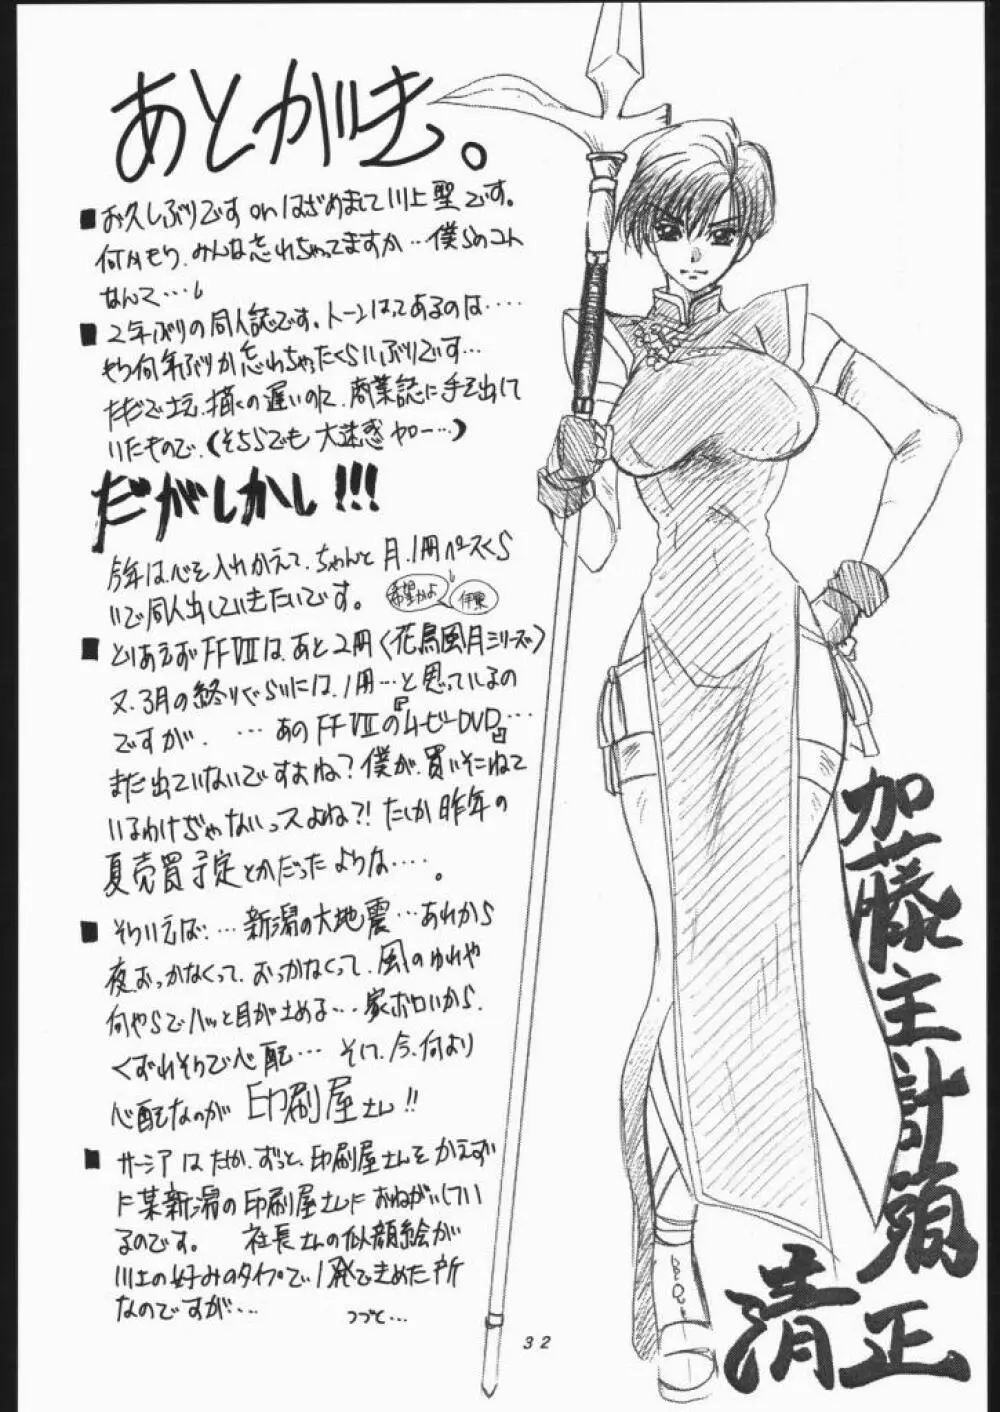 あとがき。
■お久しぶりです onはじめまして川上聖です。
何かもう、みんな忘れちゃってますか…僕らのコト
なんて…。
■2年ぶりの同人誌です。トーンはってあるのは‥‥
もう何年ぶりか忘れちゃったくらいぶりです…
ただで立え、描くの遅いのに、商業誌に手を出して
いたもので、(そちらでも大迷惑ヤロー…)
だがしかし!!!
今年は心を入れかえて、ちゃんと月、1冊ペースくら
いで同人出していきたいです。
希望かよ
伊東
■とりあえずFFⅦは、あと2冊〈花鳥風月シリーズ〉
又、3月の終りぐらいには、1冊…と思っているの
ですが、…あのFFⅦの『ムービーDVD』…
まだ出ていないですよね?僕が、買いそこねて
いるわけぢゃないっスよね?!たしか昨年の
夏売買予定とかだったような‥‥。
■そういえば‥…新潟の大地震…あれから
夜、おっかなくって、おっかなくって、風のゆれや
何やらでハッと目が止める…家ボロいから、
くずれそうで心配… そして、今、何より
心配なのが 印刷屋さん!!
■サーシアはたか、ずっと、印刷屋さんをかえず
に某新潟の印刷屋さんにおねがいしてい
るのです。 社長さんの似顔絵が
川上の好みのタイプで1発できめた所
なのですが‥…
つづと…
加藤主計頭
清正
32